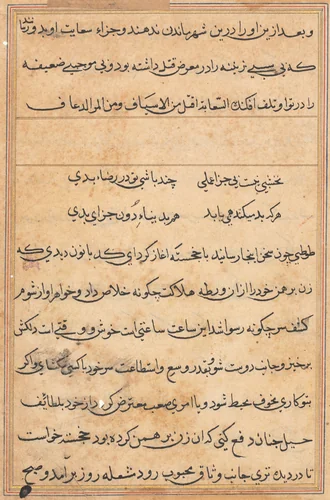 و بعد ازین او را درین شهر ماندن ندهند و جزاء سعایت او بدو رسانند
که بی سببی نر بنه را در معرض قتل داشته بود و بی موجبی ضعیفه
را در تلف افکند السعایة اقل من الاسیاف ومن
نخشبی نیست بی جزا عملی چند باشی تو در رضاء بدی
هر که بد میکند همی یابد هم بدنیاء دون جزای بدی
طوطی چون سخن اینجا رسانید با خجسته آغاز کرد ای کدبانو دیدی که
زن برهمن خود را از آن ورطه هلاکت چگونه خلاص داد و خواهر او ار شوم
کشف سر چگونه رسوا شد این ساعت ساعتی است خوش و وقتی است دلکش
برخیز و جانب دوست شو بقدر وسع و استطاعت سر خود با کسی مکشای و اگر
بتو کاری مخوف محیط شود و یا امری صعب معترض گردد از خود بلطائف
حیل چنان دفع کنی که آن زن برهمن کرده بود خجسته خواست
تا در دیده تری جانب وثاق محبوب رود شعله روز برآمد و صبح